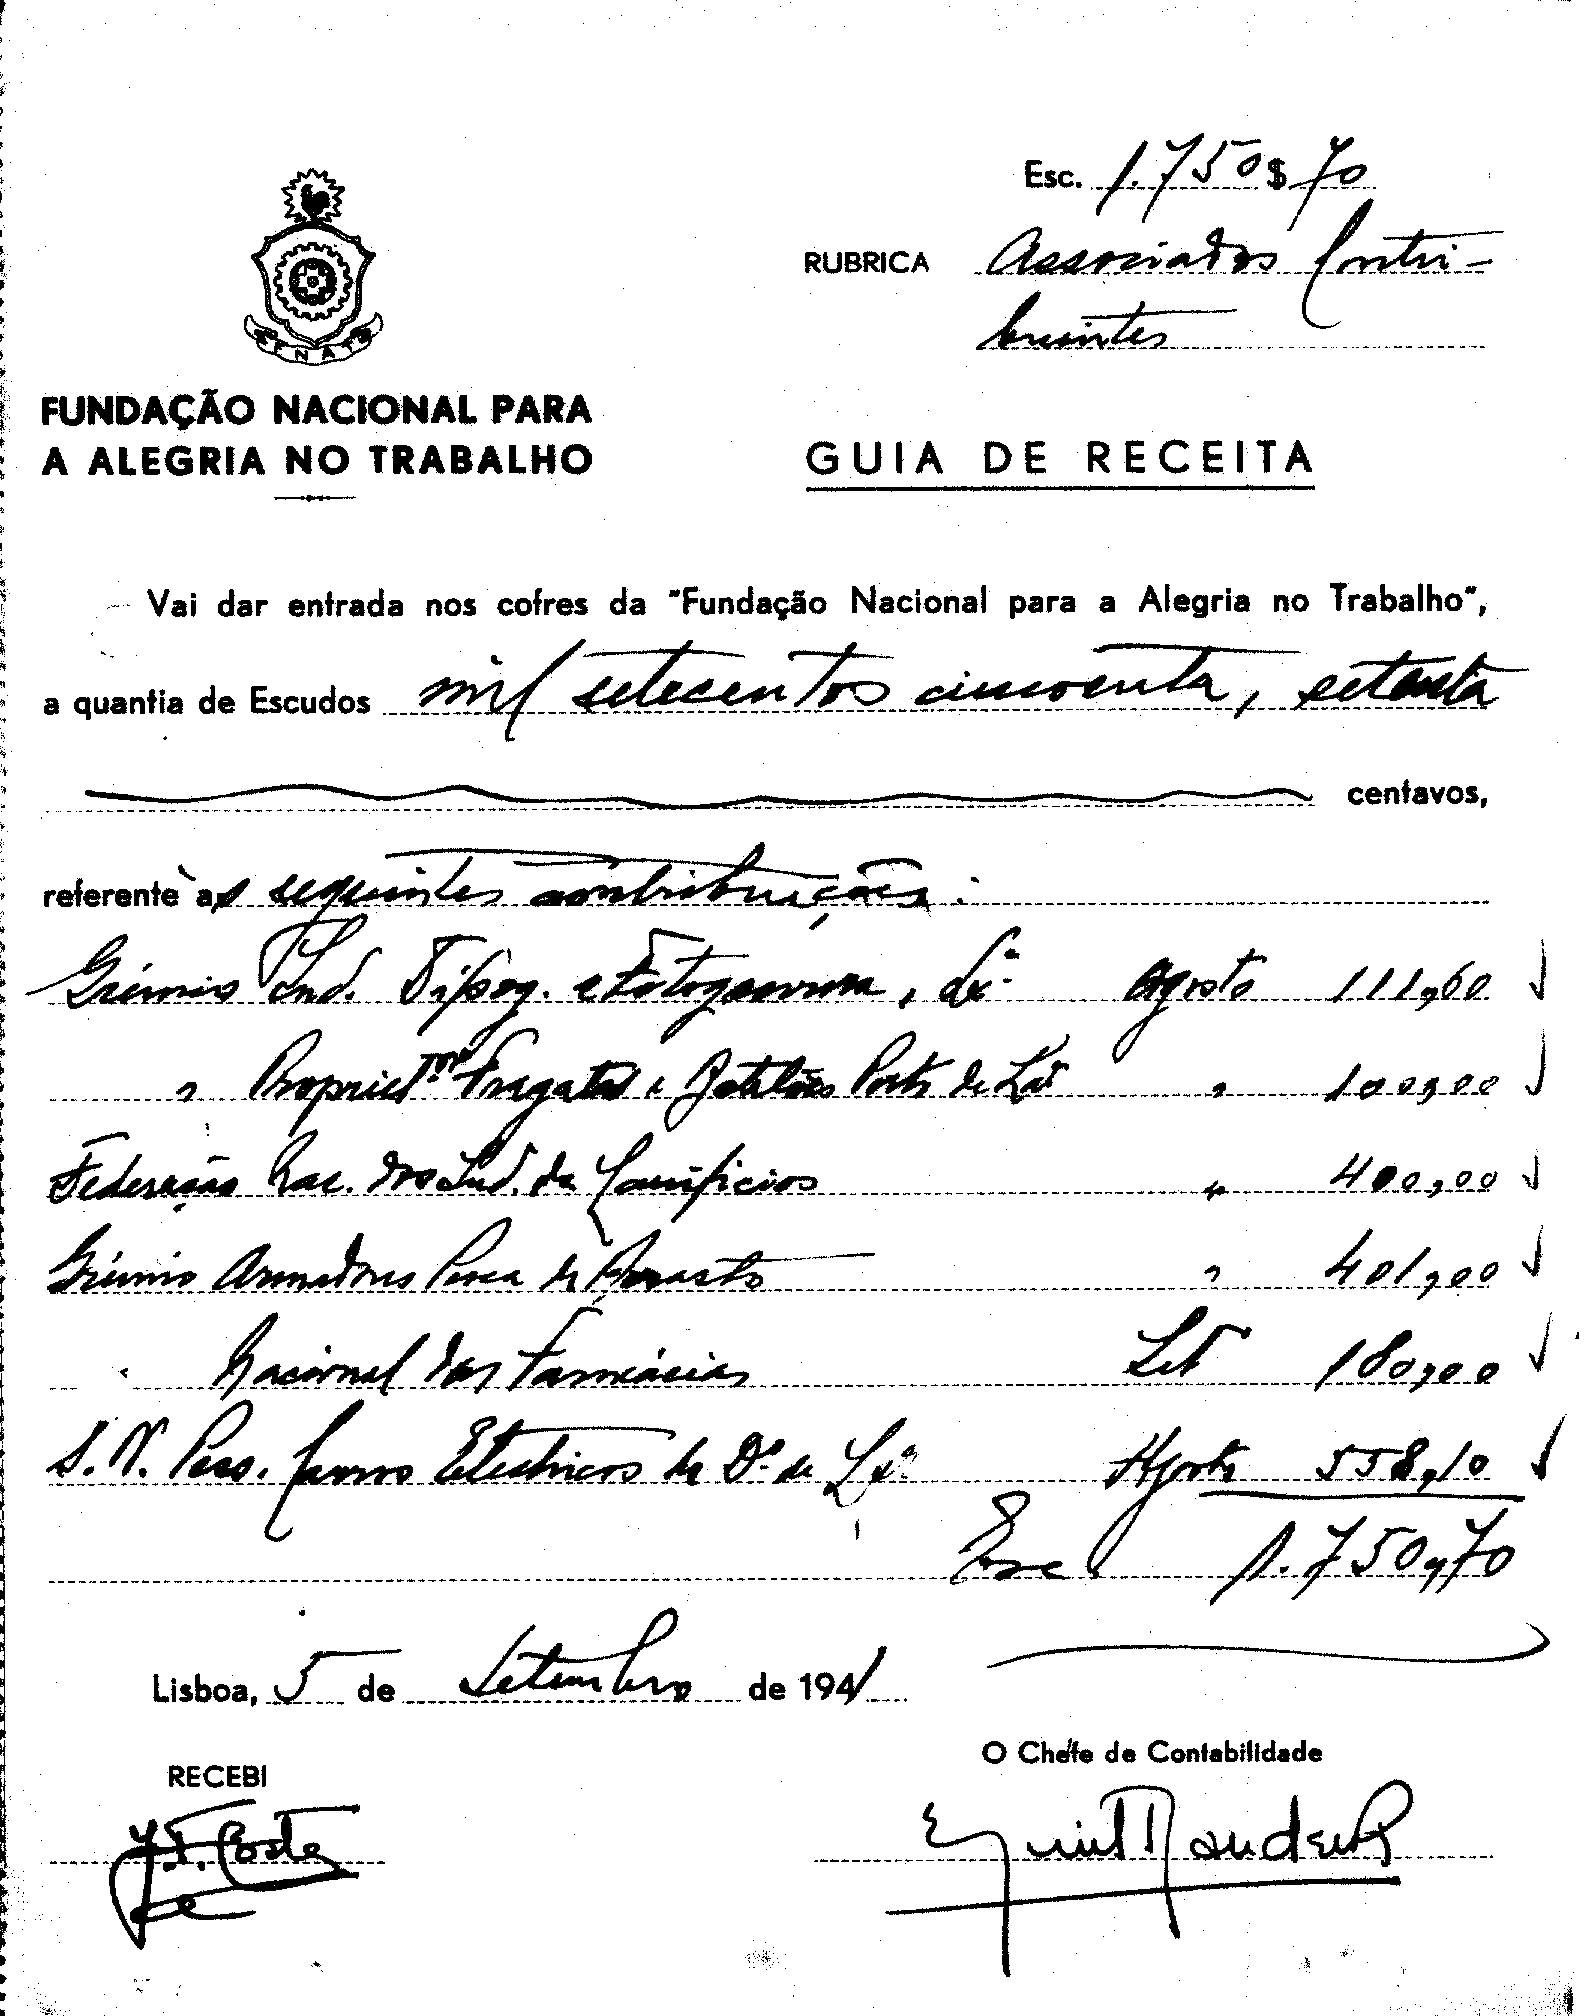 Esc. 1.750$70
RUBRICA Associados Contri-
buintes
FNAT
FUNDAÇÃO NACIONAL PARA
A ALEGRIA NO TRABALHO
GUIA DE RECEITA
Vai dar entrada nos cofres da "Fundação Nacional para a Alegria no Trabalho",
a quantia de Escudos mil setecentos cincoenta, setenta
centavos,
referente às seguintes contribuições:
Grémio Ind. Tipog. e Fotogravura, Lxª. Agosto 111,60
" Propriet.ros Fragatas e Batelões Porto de Lxª " 100,00
Federação Nac. dos Ind. de Lanifícios " 400,00
Grémio Armadores Pesca de Arrasto " 401,00
" Nacional das Farmácias Set 180,00
S. N. Pess. Carros Eléctricos do Dº. de Lxª. Agosto 558,10
Esc 1.750,70
Lisboa, 5 de Setembro de 1941
RECEBI
O Chefe de Contabilidade
J. F. Costa